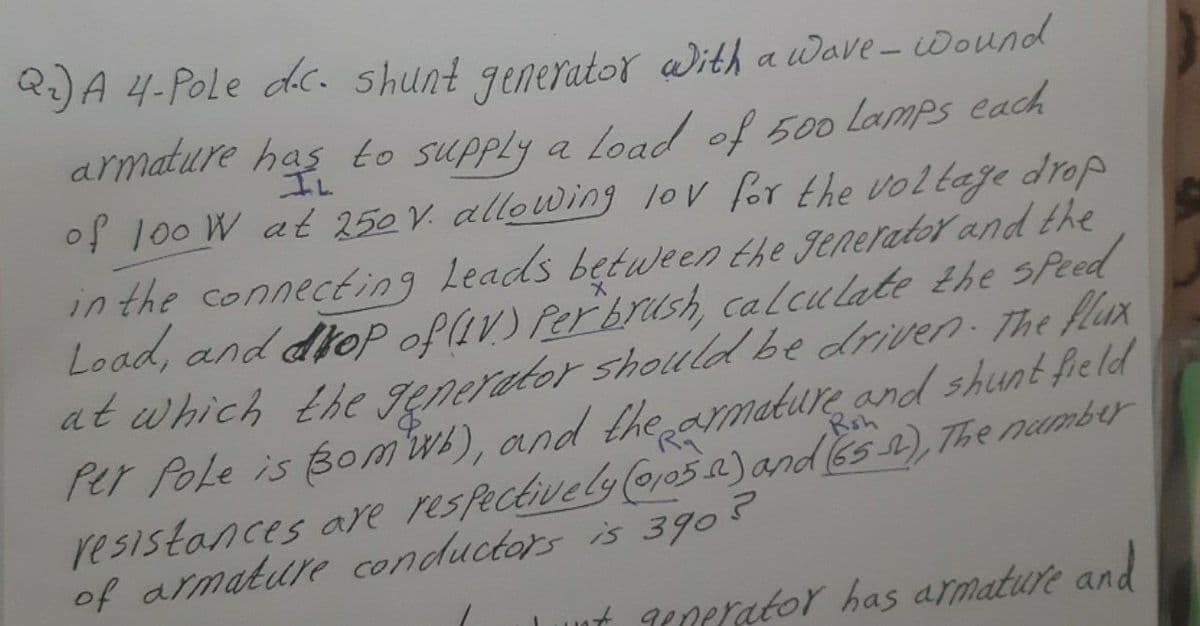 Q2) A 4-Pole d.c. shunt generator with a wave-wound
armature has to supply a load of 500 Lamps each
IL
of 100 W at 250 V. allowing 10V for the voltage drop
in the connecting Leads between the generator and the
x
Load, and drop of (1V.) Per brush, calculate the speed
at which the generator should be driven. The flux
Φ
Per Pole is (30m Wb), and the armature and shunt field
Ra Rsh
resistances are respectively (0,05 Ω) and (65 Ω), The number
of armature conductors is 390?
generator has armature and